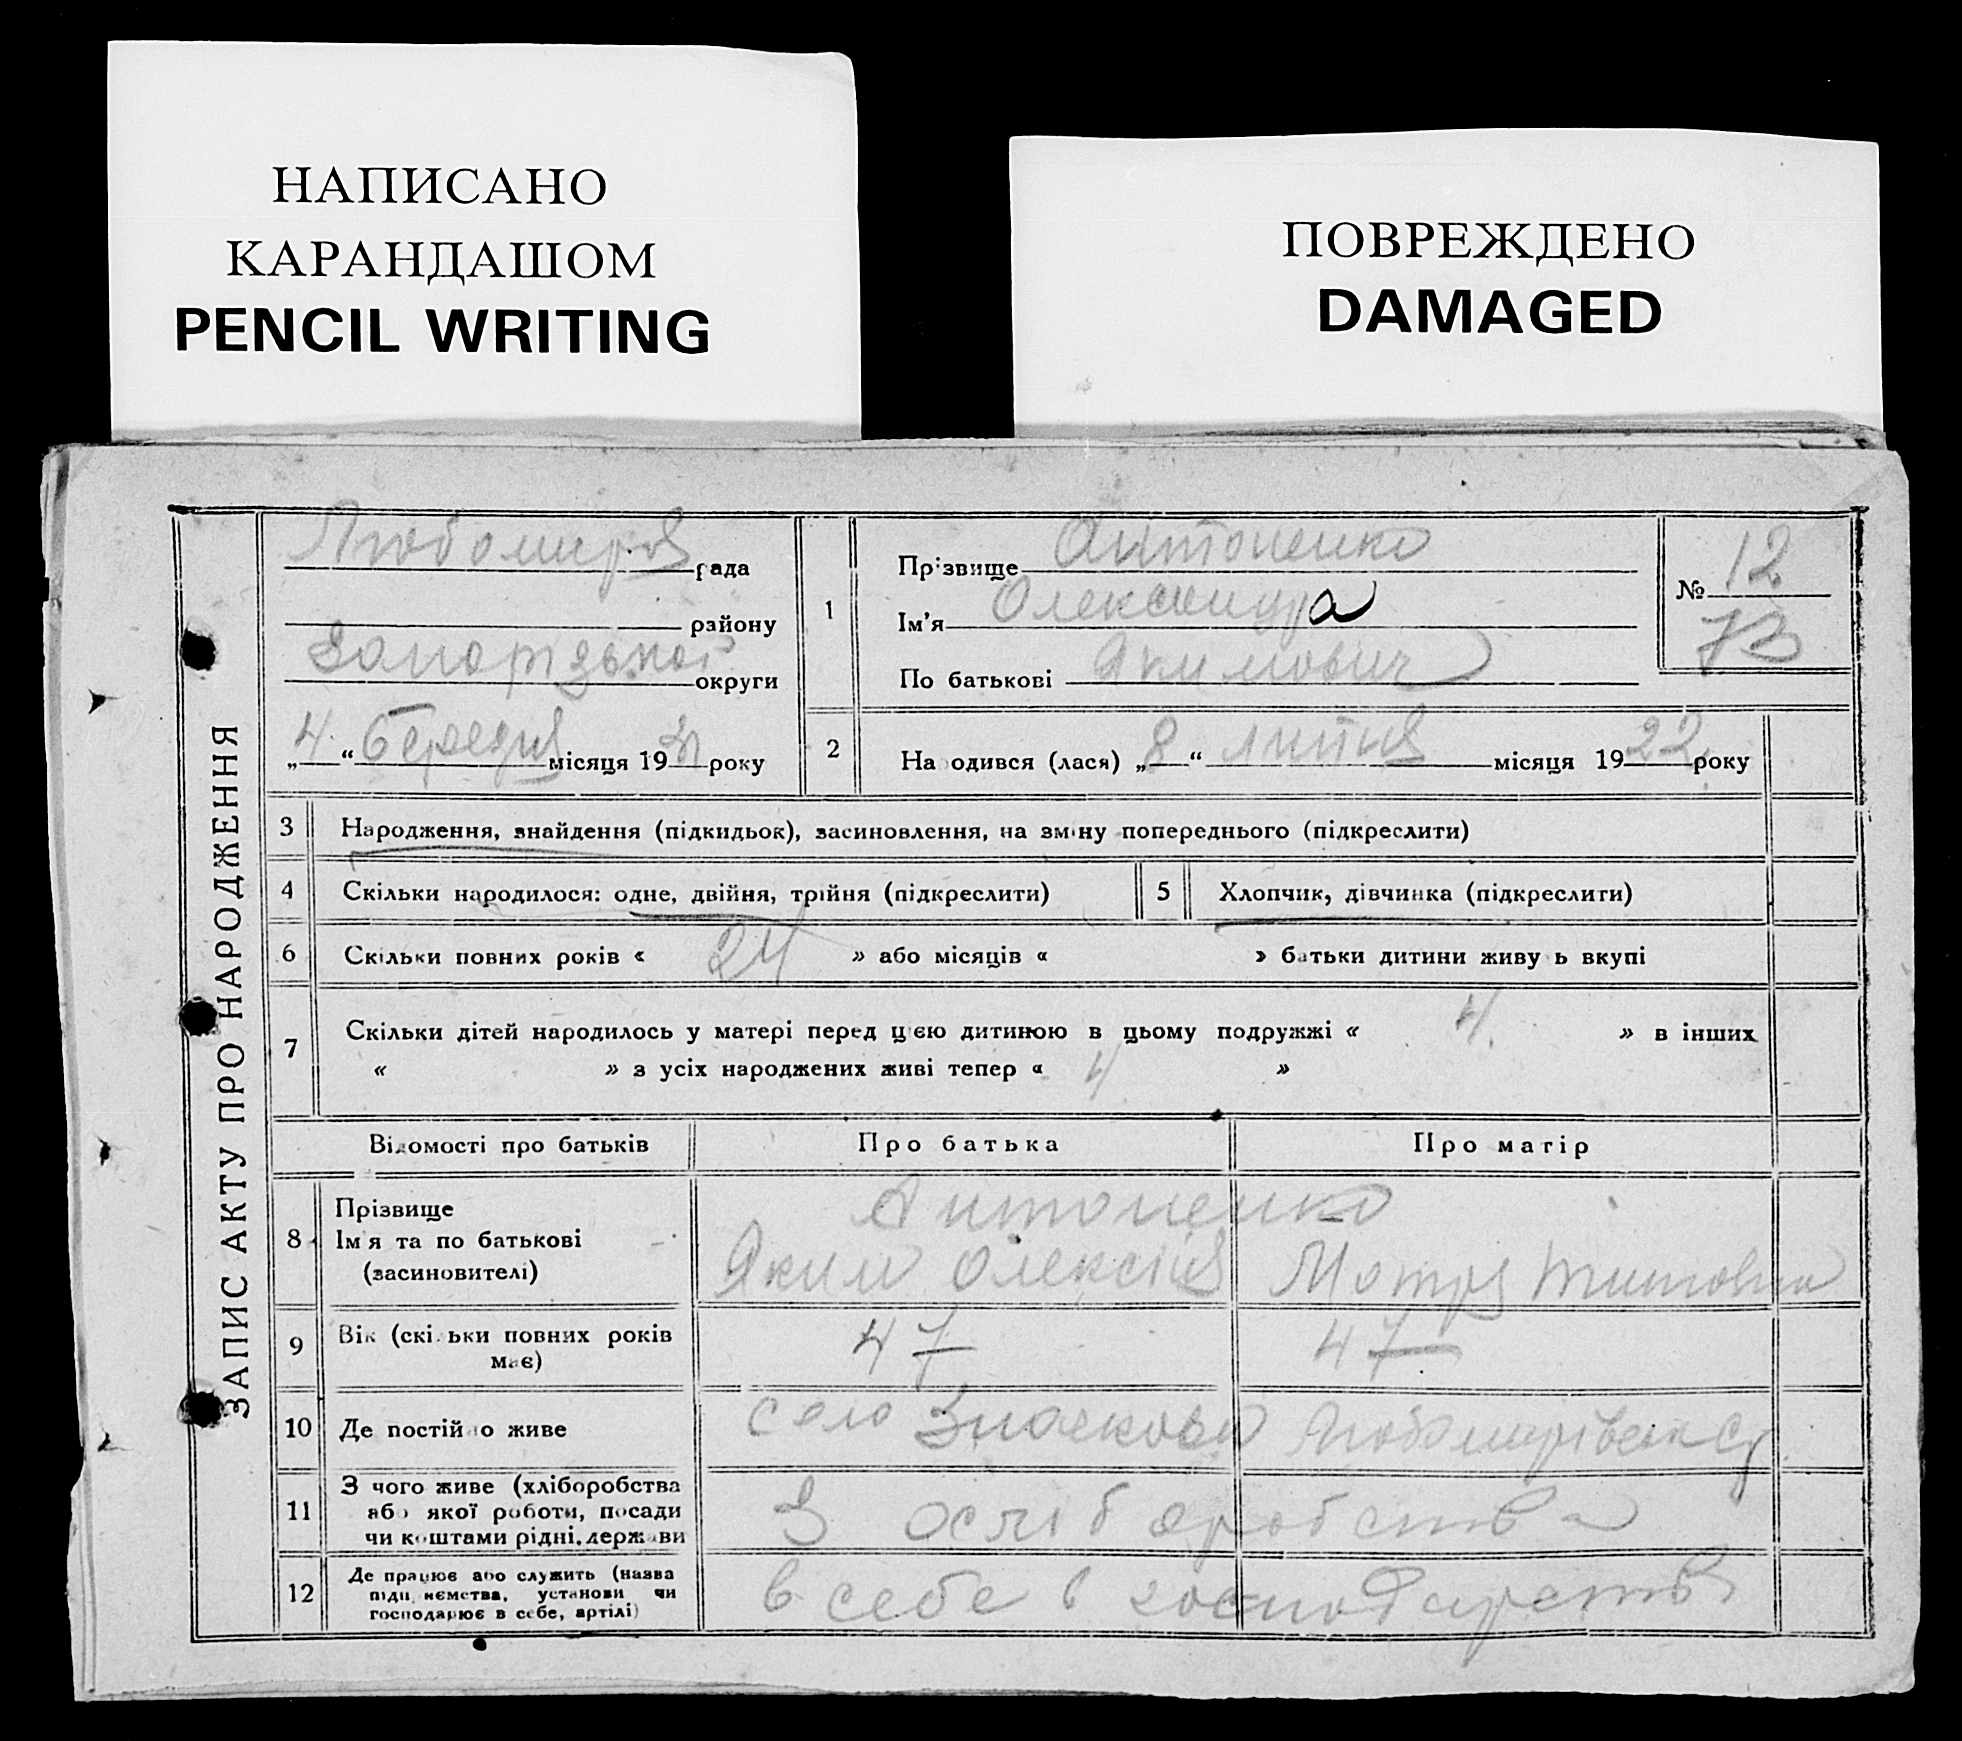 НАПИСАНО
КАРАНДАШОМ
PENCIL WRITING
ПОВРЕЖДЕНО
DAMAGED
ЗАПИС АКТУ ПРО НАРОДЖЕННЯ
рада
району
Запорізької округи
„4“ березня місяця 1931 року
1
Прізвище Антоненко
Ім'я Олександра
По батькові Якимович
№ 12
73
2
Народився (лася) „8“ липня місяця 1922 року
3 Народження, знайдення (підкидьок), засиновлення, на зміну попереднього (підкреслити)
4 Скільки народилося: одне, двійня, трійня (підкреслити)
5 Хлопчик, дівчинка (підкреслити)
6 Скільки повних років « 24 » або місяців « » батьки дитини живуть вкупі
7 Скільки дітей народилось у матері перед цією дитиною в цьому подружжі « 4. » в інших
« » з усіх народжених живі тепер « 4 »
Відомості про батьків Про батька Про матір
8 Прізвище
Ім'я та по батькові
(засиновителі)
Антоненко
Яким Мотря Титовна
9 Вік (скільки повних років
має)
47 47
10 Де постійно живе село
11 З чого живе (хліборобства
або якої роботи, посади
чи коштами рідні, держави
З
12 Де працює або служить (назва
підприємства, установи чи
господарює в себе, артілі)
в себе в господарстві